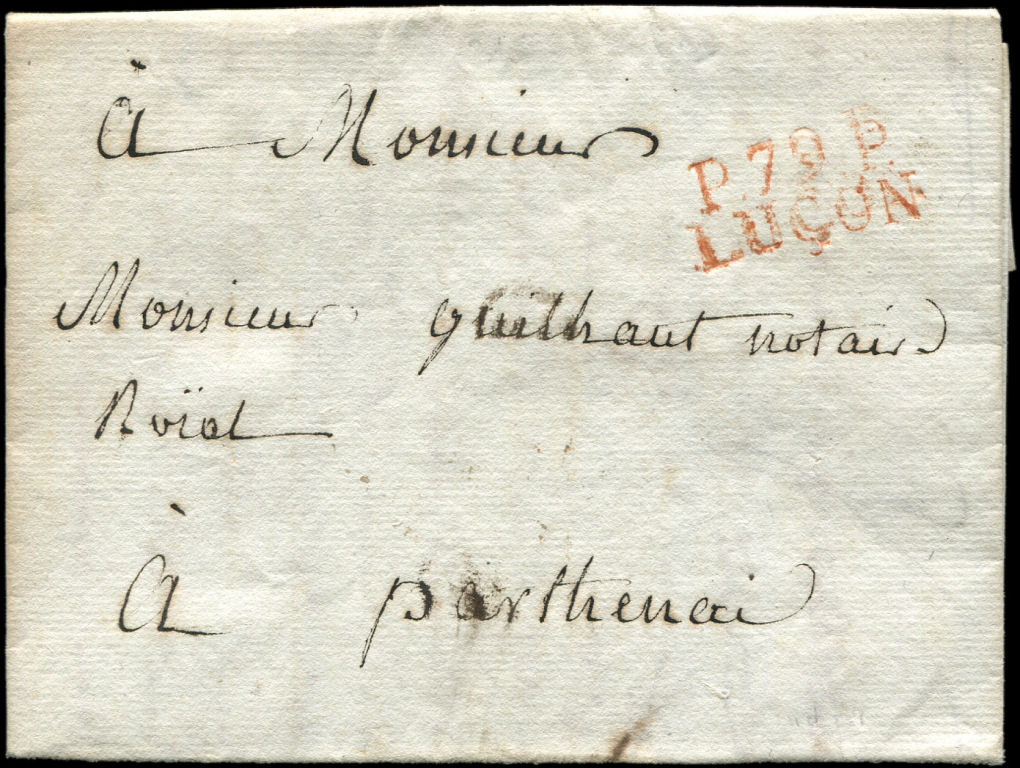 à Monsieur
P.79.P.
LUÇON
Monsieur guilhaut notaire
Roïal
à parthenai